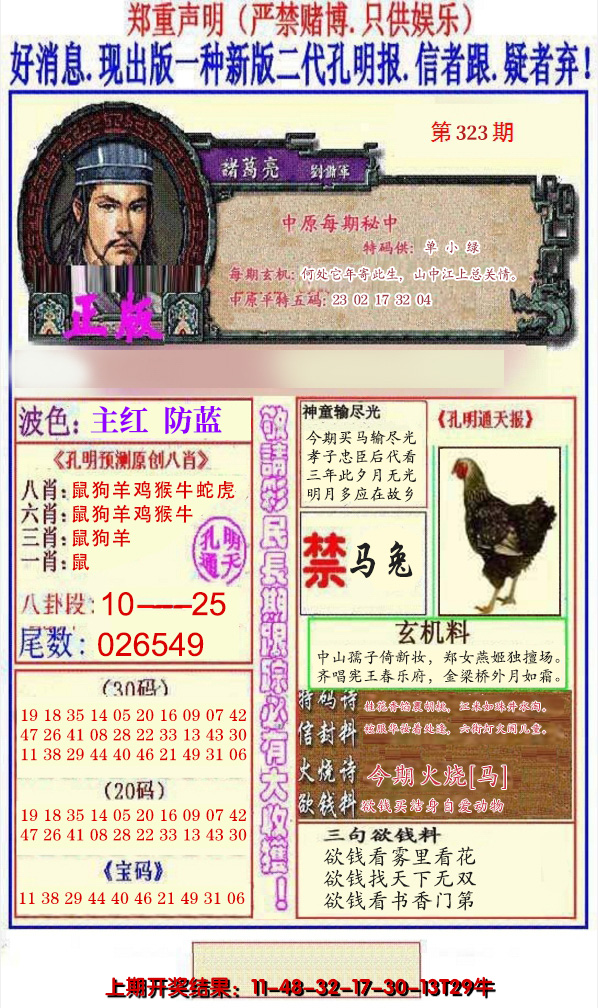 郑重声明（严禁赌博.只供娱乐）
好消息.现出版一种新版二代孔明报.信者跟.疑者弃!
第323期
諸葛亮 劉備軍
中原每期秘中
特码供：单小绿
每期玄机:何处它年寄此生，山中江上总关情。
中原平特五码:23 02 17 32 04
正版
波色：主红 防蓝
《孔明预测原创八肖》
八肖:鼠狗羊鸡猴牛蛇虎
六肖:鼠狗羊鸡猴牛
三肖:鼠狗羊
一肖:鼠
孔明
通天
八卦段:10——25
尾数:026549
（30码）
19 18 35 14 05 20 16 09 07 42
47 26 41 08 28 22 33 13 43 30
11 38 29 44 40 46 21 49 31 06
（20码）
19 18 35 14 05 20 16 09 07 42
47 26 41 08 28 22 33 13 43 30
《宝码》
11 38 29 44 40 46 21 49 31 06
敬請彩民長期跟踪必有大收獲！
神童输尽光
今期买马输尽光
孝子忠臣后代看
三年此夕月无光
明月多应在故乡
《孔明通天报》
禁 马兔
玄机料
中山孺子倚新妆，郑女燕姬独擅场。
齐唱宪王春乐府，金梁桥外月如霜。
特码诗 桂花香馅裹胡桃，江米如珠井水淘。
信封料 六街灯火闹儿童。
火烧诗 今期火烧[马]
欲钱料 欲钱买洁身自爱动物
三句欲钱料
欲钱看雾里看花
欲钱找天下无双
欲钱看书香门第
上期开奖结果：11-48-32-17-30-13T29牛